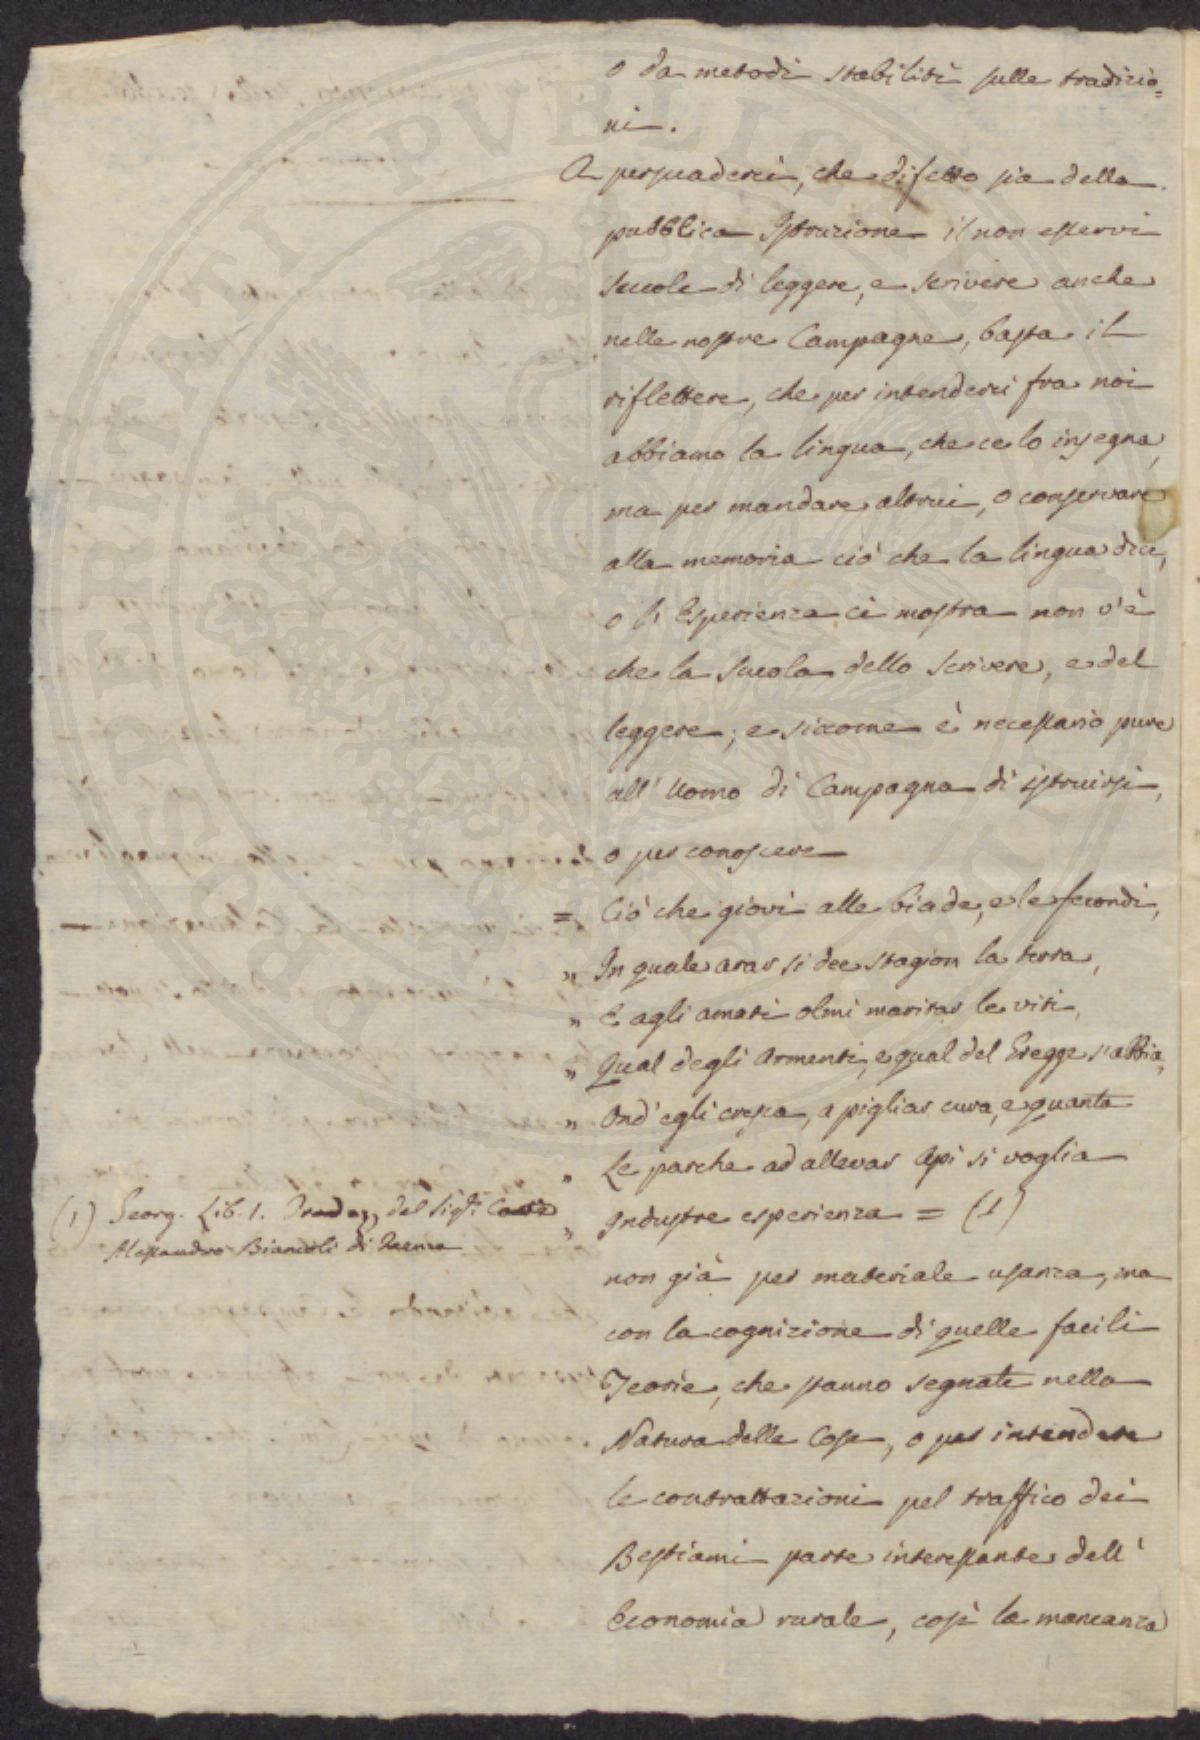 o da metodi stabiliti sulle tradizio=
ni.
A persuaderci, che difetto sia della
pubblica Istruzione il non esservi
scuole di leggere, e scrivere anche
nelle nostre Campagne, basta il
riflettere, che per intenderci fra noi
abbiamo la lingua, che ce lo insegna,
ma per mandare altrui, o conservare
alla memoria ciò che la lingua dice,
o l'Esperienza ci mostra non v'è
che la scuola dello scrivere, e del
leggere; e siccome è necessario pure
all'Uomo di Campagna di istruirsi,
o per conoscere
= Ciò che giovi alle biade, e le fecondi,
" In quale arar si dee stagion la terra,
" E agli amati olmi maritar le viti,
" Qual degli Armenti, e qual del Gregge s'abbia,
" Ond'egli cresca, a pigliar cura, e quanta
" Le parche ad allevar Api si voglia
" Industre esperienza = (1)
(1) Georg. Lib. 1. Traduz. del Sigr. Conte
Alessandro Biancoli di Faenza
non già per materiale usanza, ma
con la cognizione di quelle facili
Teorie, che stanno segnate nella
Natura delle Cose, o per intendere
le contrattazioni pel traffico dei
Bestiami parte interessante dell'
Economia rurale, così la mancanza